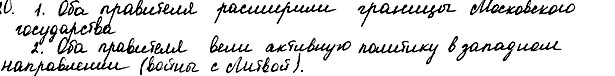 0. 1. Оба правителя расширили границы Московского
государства
2. Оба правителя вели активную политику в западном
направлении (войны с Литвой).